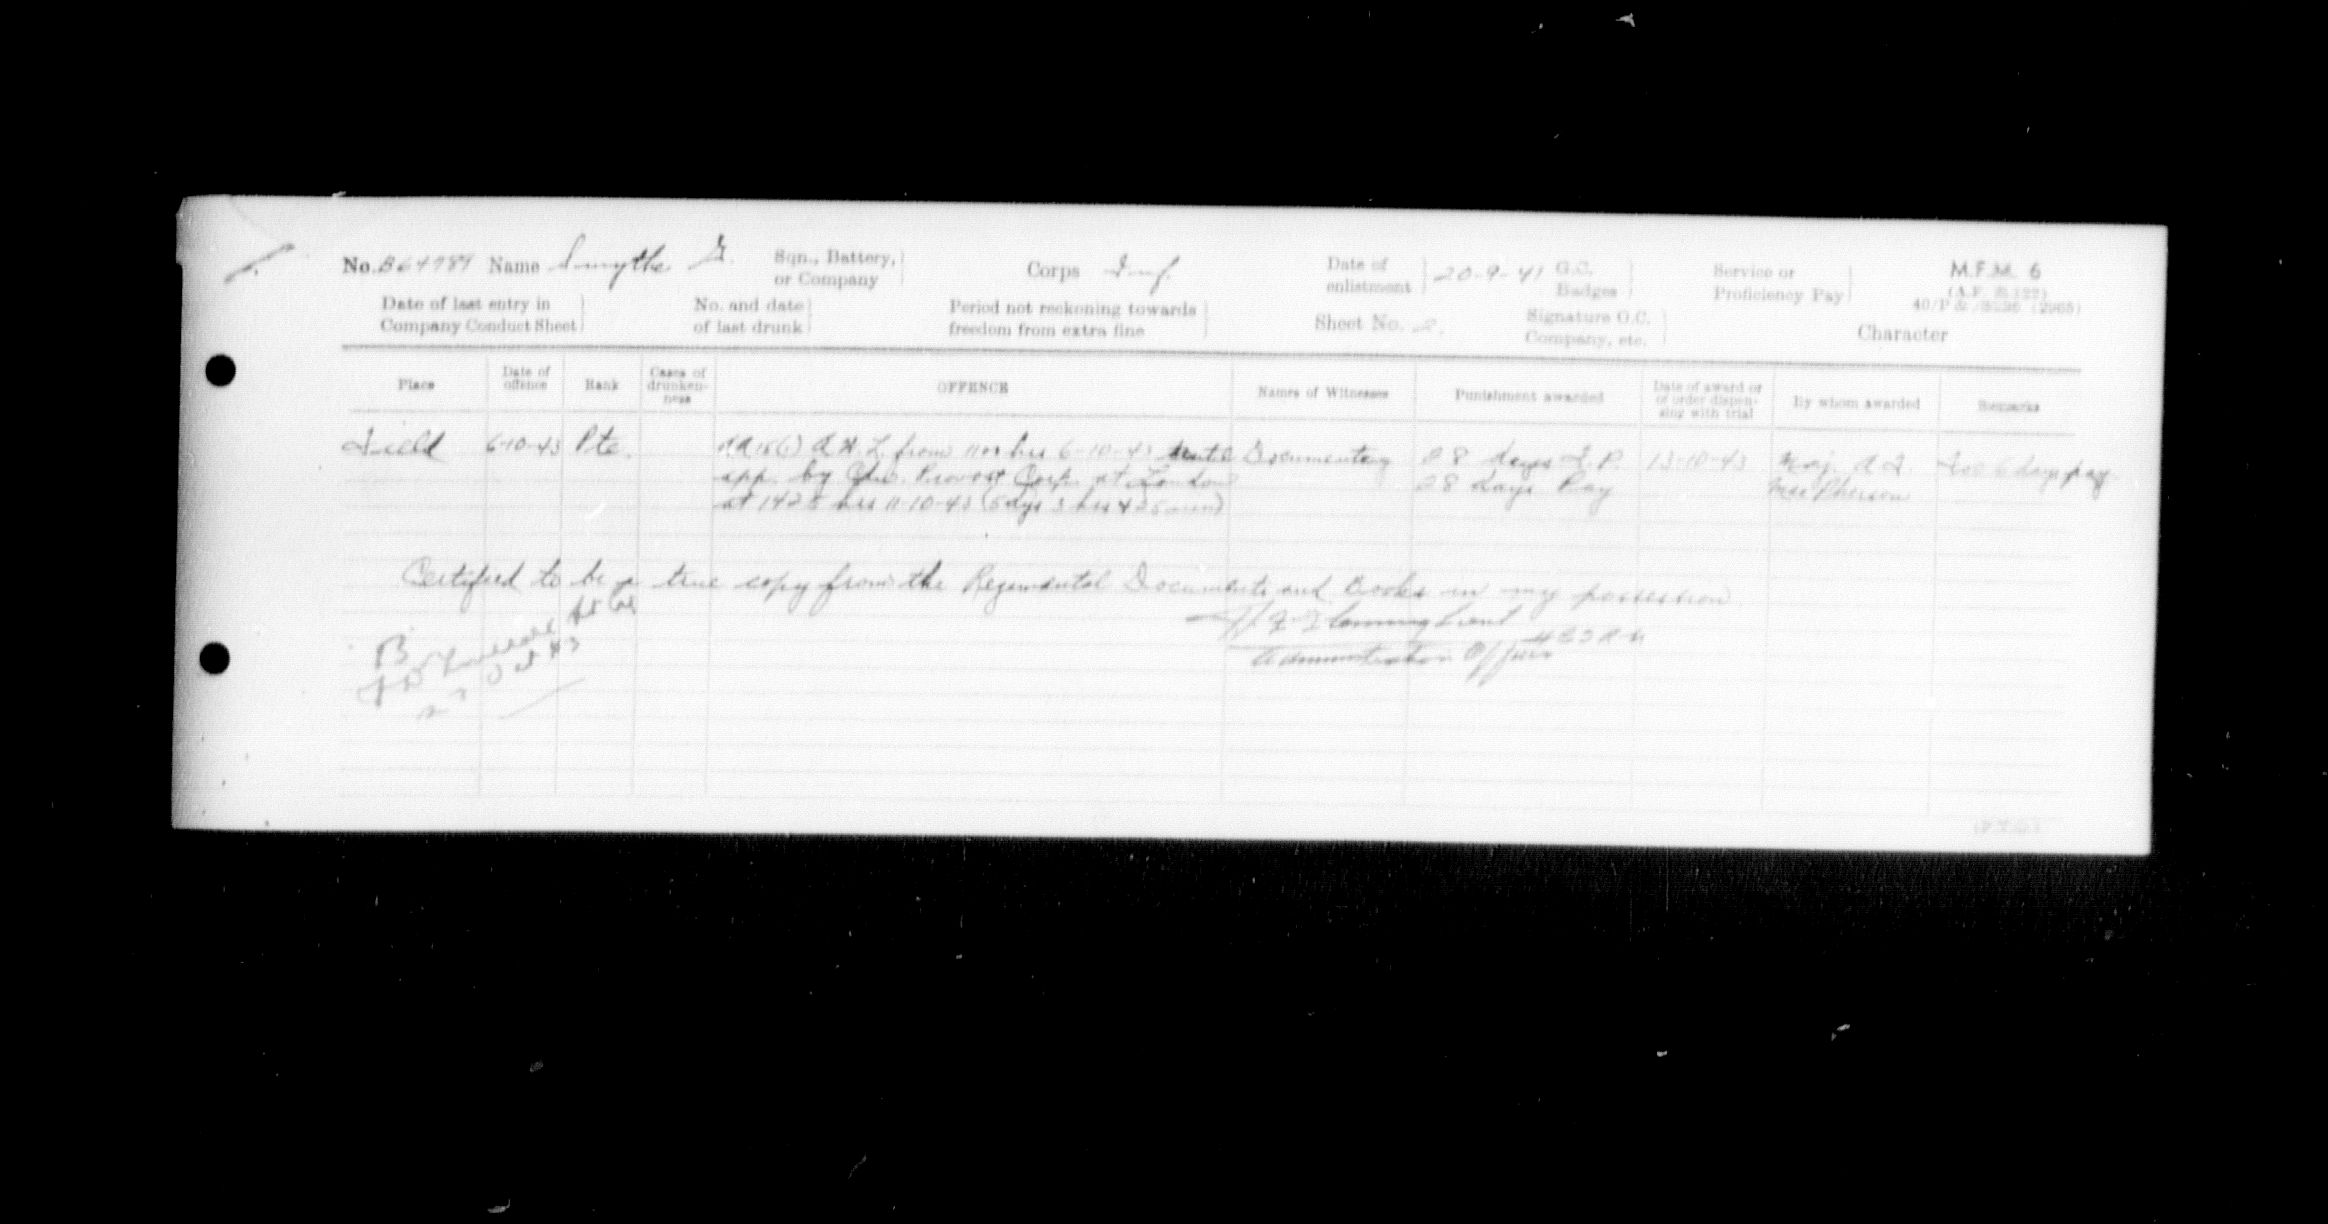 No. B64984 Name Smythe G. Sqn., Battery, or Company Corps Inf. Date of enlistment 20-9-41 G.C. Badges Service or Proficiency Pay M.F.M. 6
Date of last entry in Company Conduct Sheet No. and date of last drunk Period not reckoning towards freedom from extra fine Sheet No. 2. Signature O.C. Company, etc. Character
Place Date of offence Rank Cases of drunkenness OFFENCE Names of Witnesses Punishment awarded Date of award or or order dispensing with trial By whom awarded Remarks
Field 6-10-43 Pte. A.W.L. from hrs 6-10-43 until Documentary 28 days F.P. 13-10-43 Maj. A J. For 6 days pay
app. by Provost Corps at London 28 days Pay MacPherson
at 1425 hrs 11-10-43 (5 days 3 hrs & 25 min)
Certified to be a true copy from the Regimental Documents and Books in my possession
Lieut
Administration Officer
Oct 43